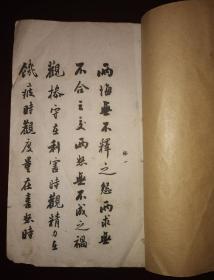 兩悔無不釋之怨兩求無
不合之交兩怒無不成之禍
觀操守在利害時觀精力在
饑疲時觀度量在喜怒時